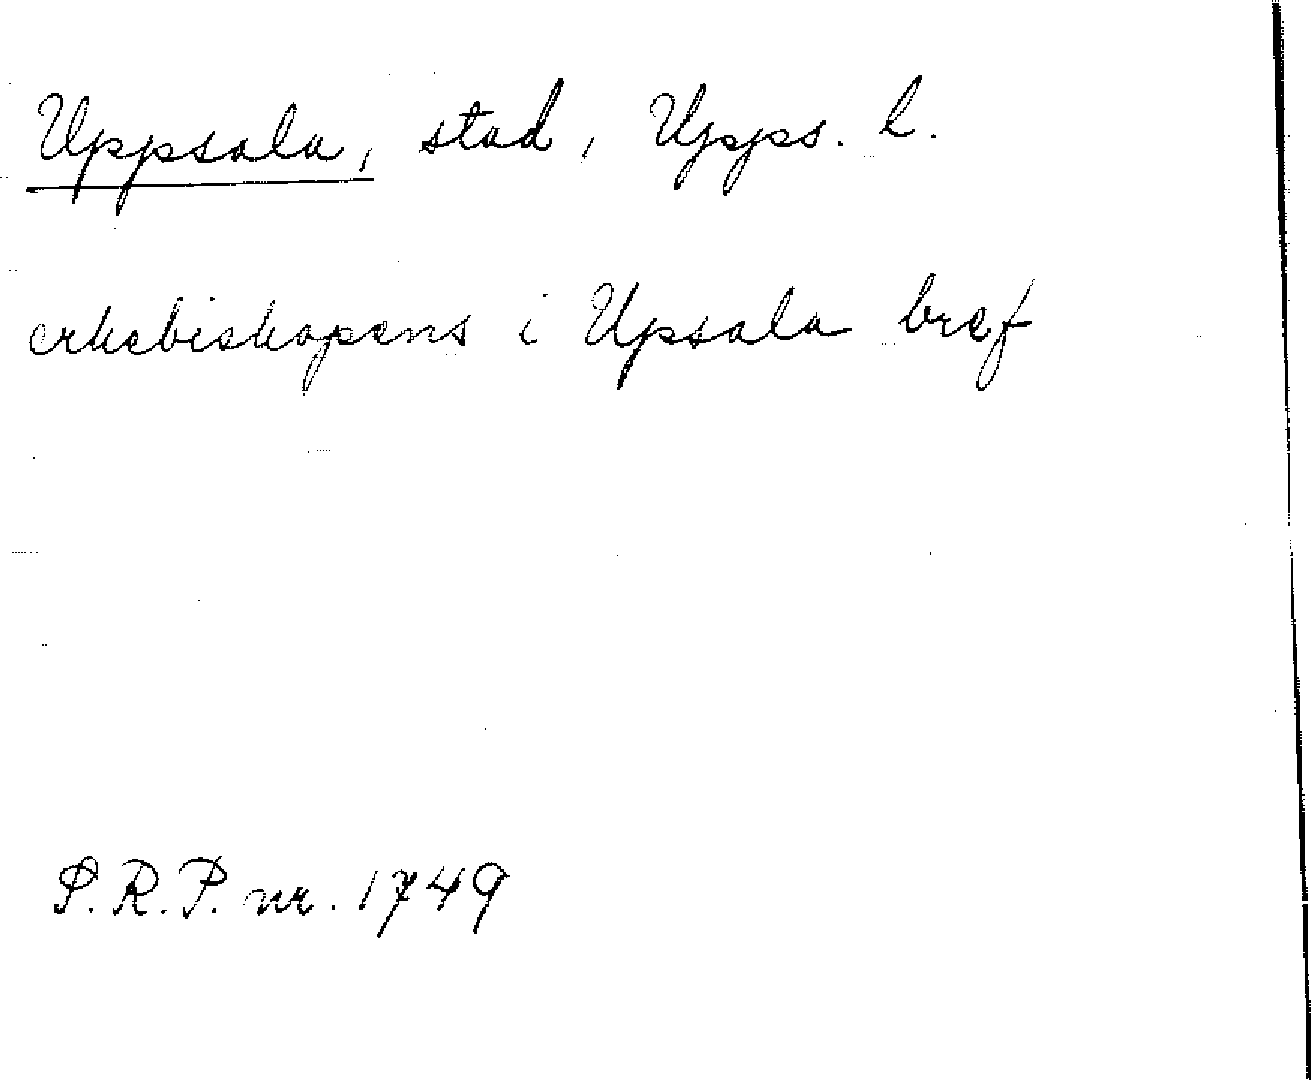 Uppsala, stad, Upps. l.
erkebiskopens i Upsala bref
S.R.P. nr. 1749